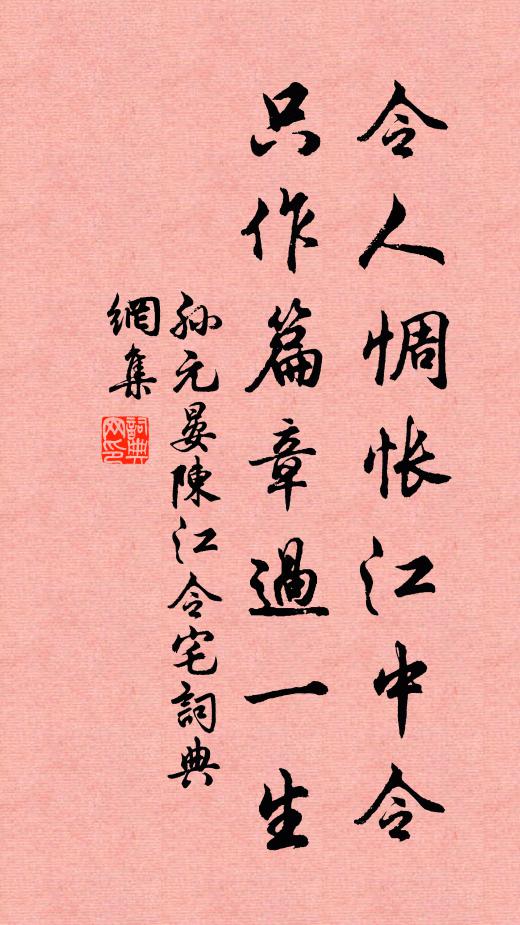 令人惆悵江中令
只作篇章過一生
孫元晏陳江令宅詞典
網集
詞典
网印